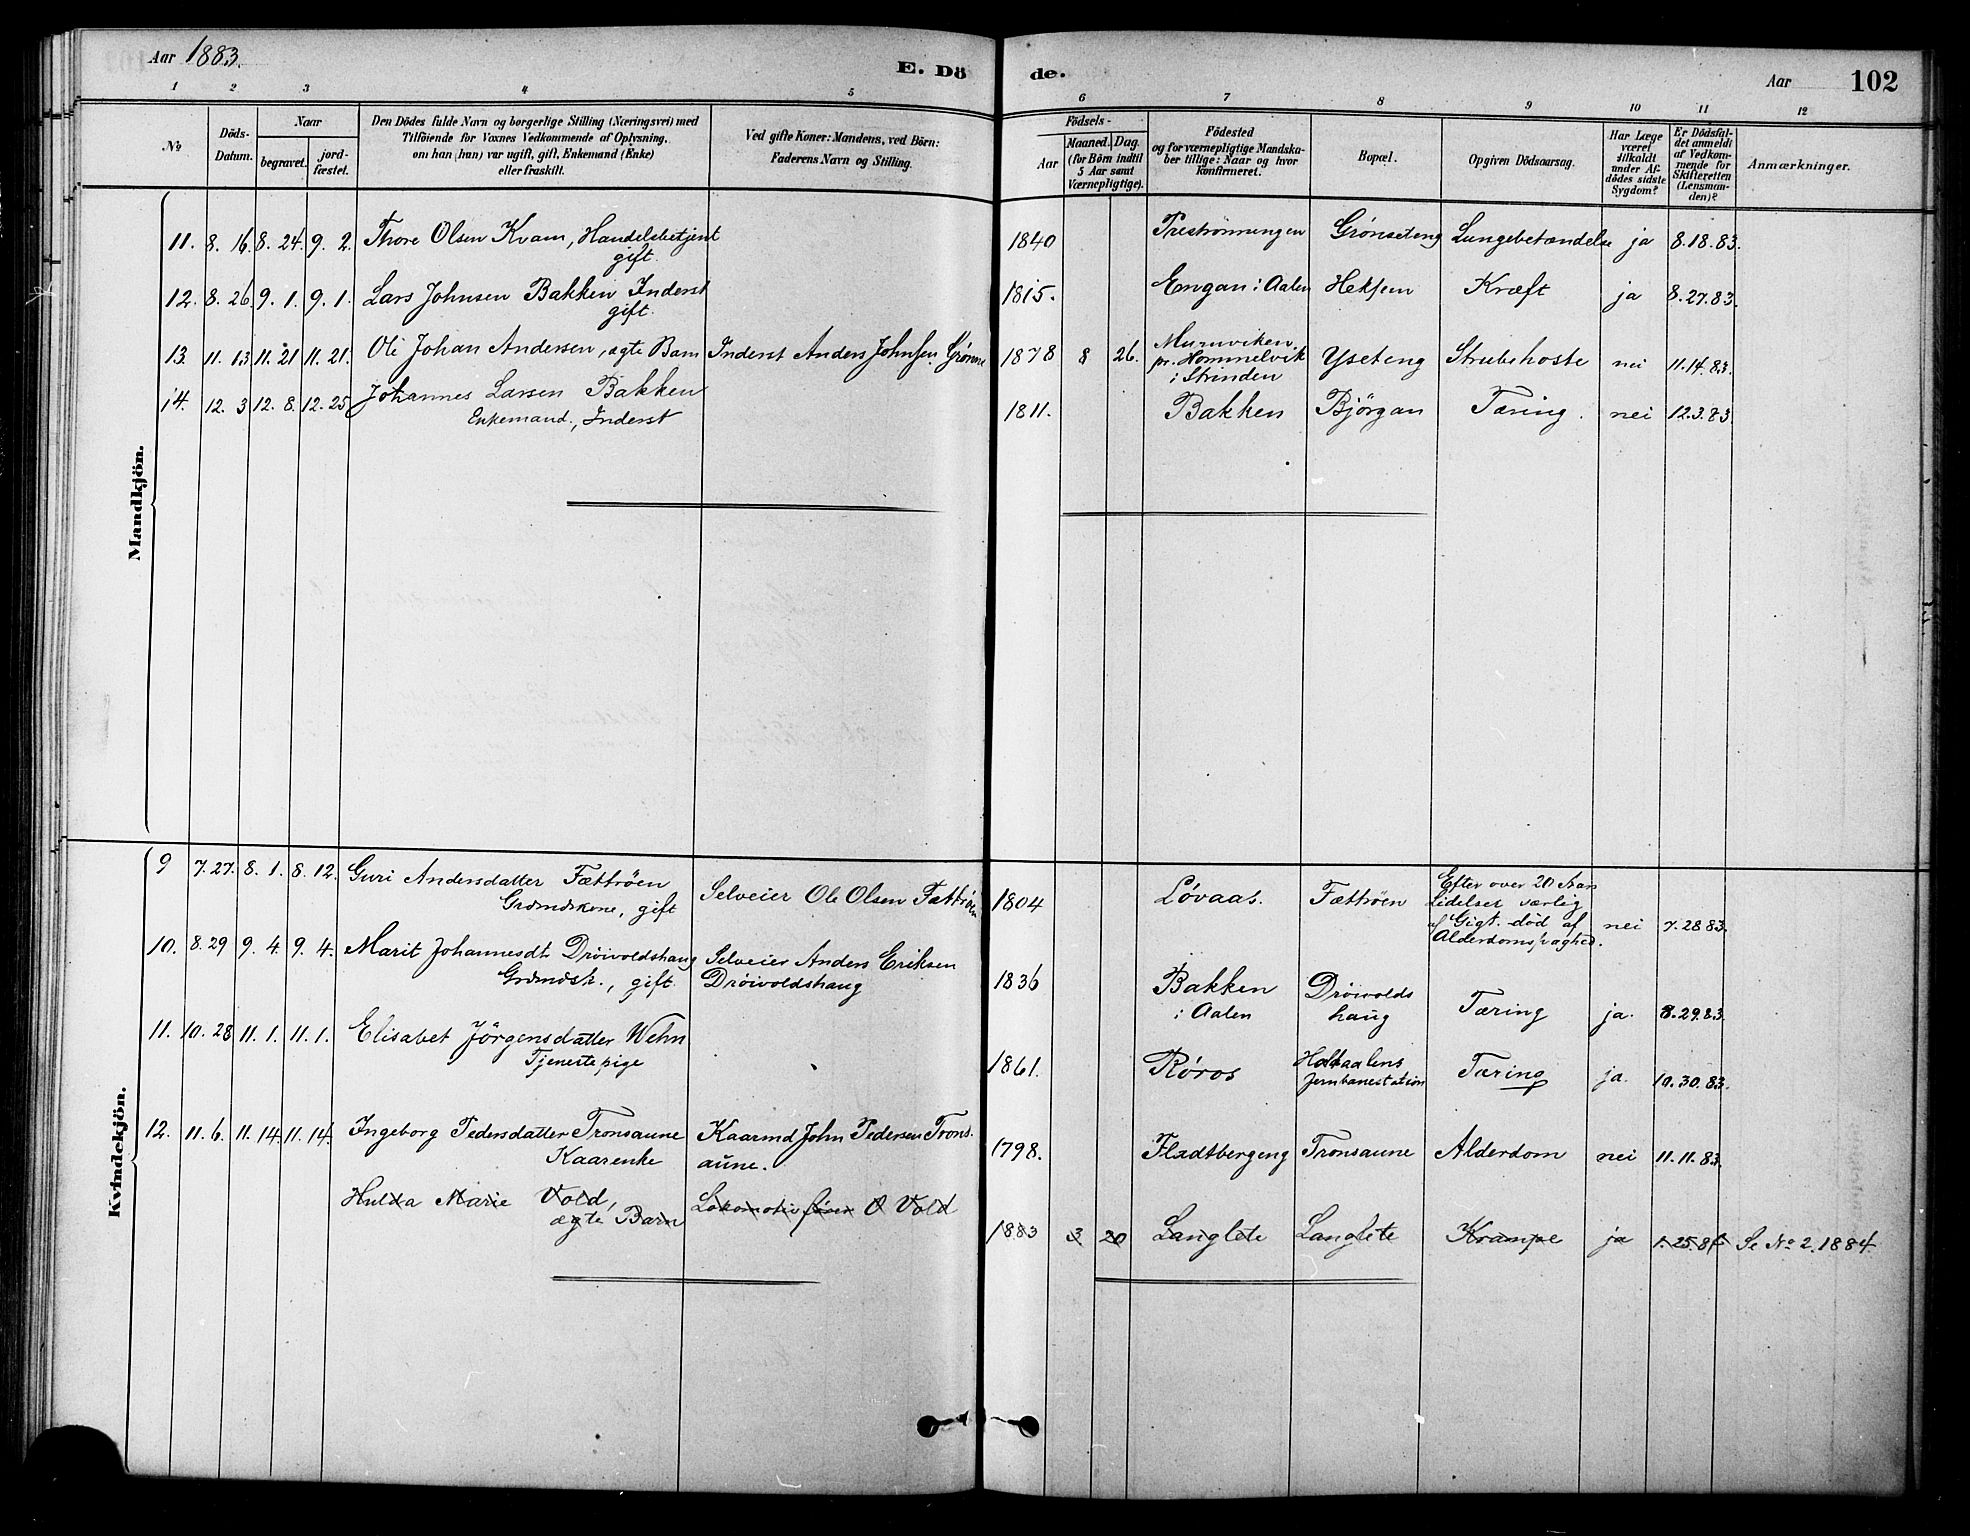 Aar 1883.
E. Dö
de.
Aar
102
1 2 3 4 5 6 7 8 9 10 11 12
No
Döds-
Datum.
Naar
begravet.
jord-
fæstet.
Den Dödes fulde Navn og borgerlige Stilling (Næringsvei) med
Tilföiende for Voxnes Vedkommende af Oplysning,
om han (hun) var ugift, gift, Enkemand (Enke)
eller fraskilt.
Ved gifte Koner: Mandens, ved Börn:
Faderens Navn og Stilling.
Födsels-
Aar
Maaned. Dag.
(for Börn indtil
5 Aar samt
Værnepligtige).
Födested
og for værnepligtige Mandska-
ber tillige: Naar og hvor
konfirmeret.
Bopæl.
Opgiven Dödsaarsag.
Har Læge
været
tilkaldt
under Af-
dödes sidste
Sygdom?
Er Dödsfal-
det anmeldt
af Vedkom-
mende for
Skifteretten
(Lensman-
den)?
Anmærkninger.
Mandkjön.
11. 8. 16. 8. 24. 9. 2. Thore Olsen Kvam, Handelsbetjent 1840 Prestrønningen Grønseteng Lungebetændelse ja 8.18.83.
gift.
12. 8. 26. 9. 1. 9. 1. Lars Johnsen Bakken Inderst 1815. Engan i Aalen Heksem Kræft ja 8.27.83.
gift.
13. 11. 13. 11. 21 11. 21. Ole Johan Andersen, ægte Barn Inderst Anders Johnsen Grønne 1878 8 26. Muruviken
pr. Hommelvik
i Strinden
Yseteng Strubehoste nei 11.14.83.
14. 12. 3. 12. 8. 12. 25. Johannes Larsen Bakken 1811. Bakken Björgan Tæring. nei 12.3.83.
Enkemand, Inderst
Kvindekjön.
9 7. 27. 8. 1. 8. 12. Guri Andersdatter Fættröen Selveier Ole Olsen Fættrøen 1804 Løvaas. Fættröen
Grdmdskone, gift
Efter over 20 Aars
Lidelser særlig
af Gigt død af
nei 7.28.83.
10. 8. 29 9. 4. 9. 4. Marit Johannesdt. Dröivoldshaug Selveier Anders Eriksen 1836 Bakken
i Aalen
Drøivolds
haug
Tæring ja. 8.29.83.
Grdmdsk., gift. Dröivoldshaug
11. 10. 28 11. 1. 11. 1. Elisabet Jörgensdatter Wehn 1861. Røros Holtaalens
Jernbanestation
Tæring ja. 10.30.83.
Tjenestepige
12. 11. 6. 11. 14. 11. 14. Ingeborg Pedersdatter Tronsaune Kaarmd John Pedersen Trons- 1798. Fladtbergeng Tronsaune Alderdom nei 11.11.83.
Kaarenke aune.
Hulda Marie Vold, Lokomotivfører O Vold 1883 3 20 Langlete Langlete Krampe ja 1.25.84 Se No 2. 1884.
ægte Barn